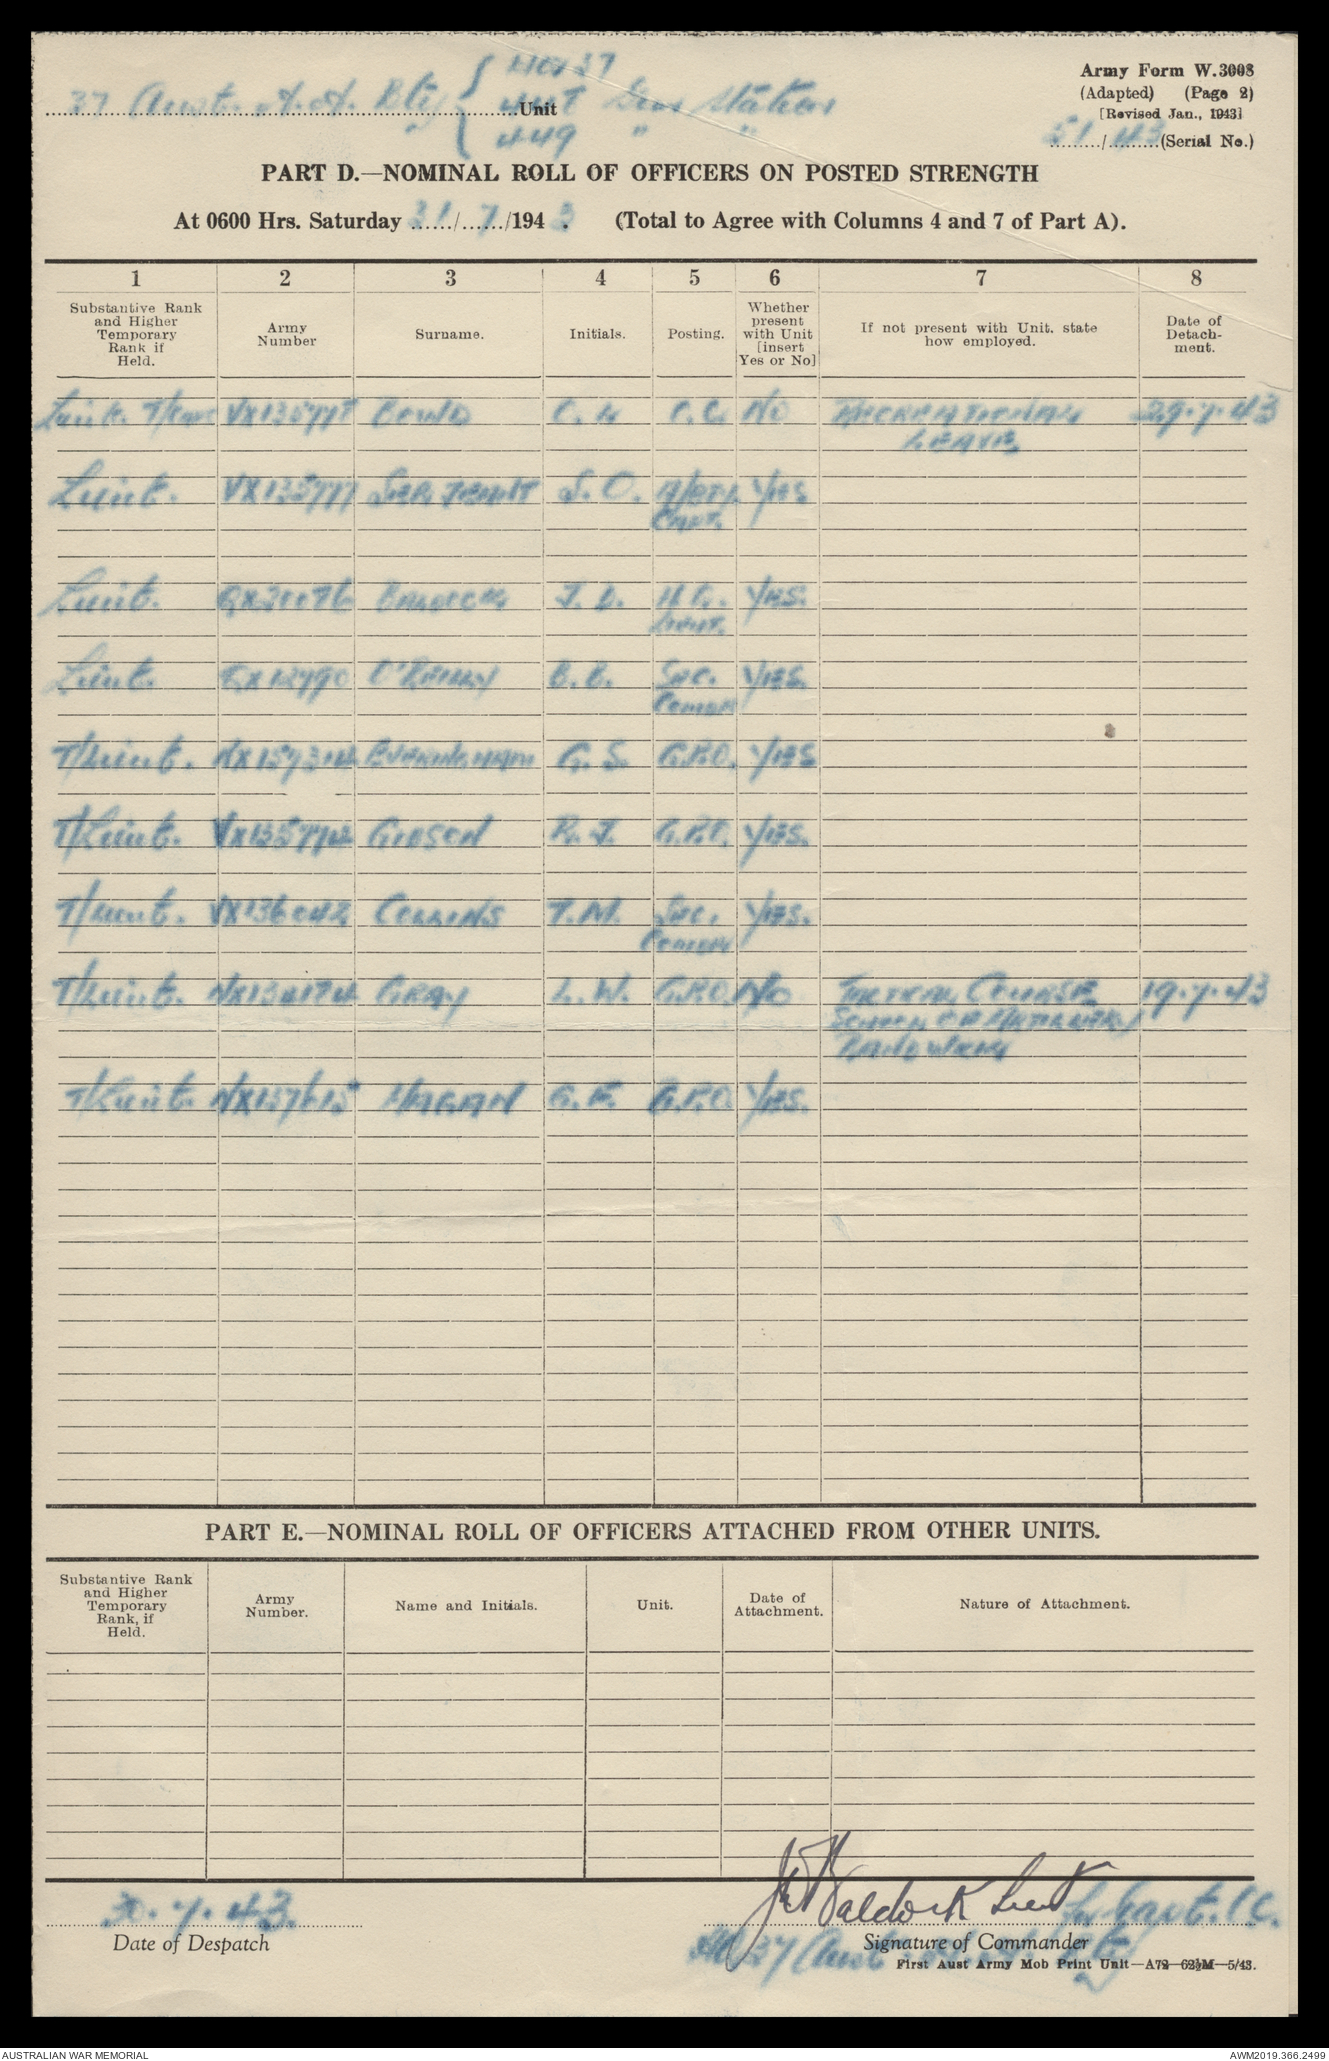 37 Aust. A.A. Bty { HQ 37
Unit 447 Gun Station
449 " "
Army Form W.3008
(Adapted) (Page 2)
[Revised Jan., 1943]
51/43 (Serial No.)
PART D.—NOMINAL ROLL OF OFFICERS ON POSTED STRENGTH
At 0600 Hrs. Saturday 31/7/1943. (Total to Agree with Columns 4 and 7 of Part A).
1 2 3 4 5 6 7 8
Substantive Rank and Higher Temporary Rank if Held.
Army Number
Surname.
Initials.
Posting.
Whether present with Unit [insert Yes or No]
If not present with Unit, state how employed.
Date of Detach-ment.
Lieut. T/Capt O.C. No RECREATIONAL 29.7.43
LEAVE
Lieut. VX135777 SERJEANT S.O. YES
CAPT.
Lieut. BALDOCK YES.
LIEUT.
Lieut. O'REILLY B.B. SEC. YES.
COMDR
T/Lieut. EVERINGHAM G.S. G.P.O. YES
T/Lieut. GIBSON R.J. G.P.O. YES.
T/Lieut. VX136042 COLLINS T.M. SEC. YES.
COMDR
T/Lieut. NX134174 GRAY L.W. G.P.O. NO TACTICAL COURSE 19.7.43
SCHOOL OF ARTILLERY
RANDWICK
T/Lieut. NX157615 HAGAN G.E. G.P.O. YES.
PART E.—NOMINAL ROLL OF OFFICERS ATTACHED FROM OTHER UNITS.
Substantive Rank and Higher Temporary Rank, if Held.
Army Number.
Name and Initials.
Unit.
Date of Attachment.
Nature of Attachment.
30.7.43
Date of Despatch
Baldock Lieut for Capt.
Signature of Commander
37 Aust. Bty
First Aust Army Mob Print Unit—A72—62½M—5/43.
AUSTRALIAN WAR MEMORIAL
AWM2019.366.2499